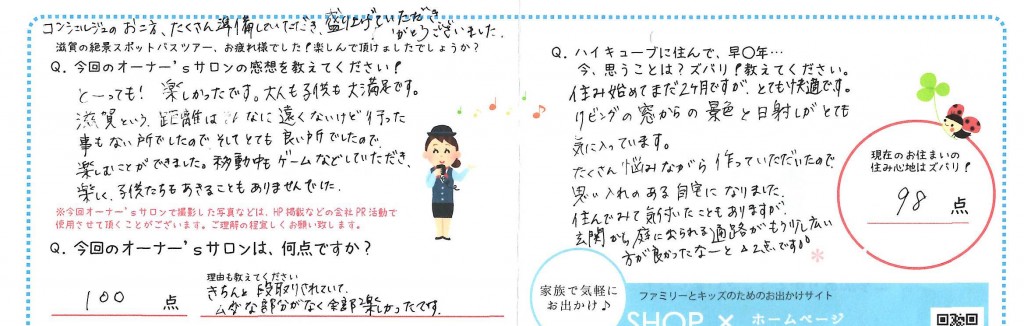 コンシェルジュのお二方、たくさん準備していただき、盛り上げていただき
がとうございました。
滋賀の絶景スポットバスツアー、お疲れ様でした!楽しんで頂けましたでしょうか?
Q. 今回のオーナー'sサロンの感想を教えてください!
とーっても! 楽しかったです。大人も子供も大満足です。
滋賀という、距離は なに遠くないけど行った
事もない所でしたので、そしてとても良い所でしたので、
楽しむことができました。移動中もゲームなどしていただき、
楽しく、子供たちもあきることもありませんでした。
※今回オーナー'sサロンで撮影した写真などは、HP掲載などの会社PR活動で
使用させて頂くことがございます。ご理解の程宜しくお願い致します。
Q. 今回のオーナー'sサロンは、何点ですか?
100 点
理由も教えてください
きちんと段取りされていて、
ムダな部分がなく全部楽しかったです。
Q. ハイキューブに住んで、早〇年…
今、思うことは?ズバリ!教えてください。
住み始めてまだ2ヶ月ですが、とても快適です。
リビングの窓からの景色と日射しがとても
気に入っています。
たくさん悩みながら作っていただいたので、
思い入れのある自宅になりました。
住んでみて気付いたこともありますが、
玄関から庭に出られる通路がもう少し広い
方が良かったなーと△2点です。
現在のお住まいの
住み心地はズバリ?
98 点
家族で気軽に
お出かけ♪
ファミリーとキッズのためのお出かけサイト
SHOP × ホームページ